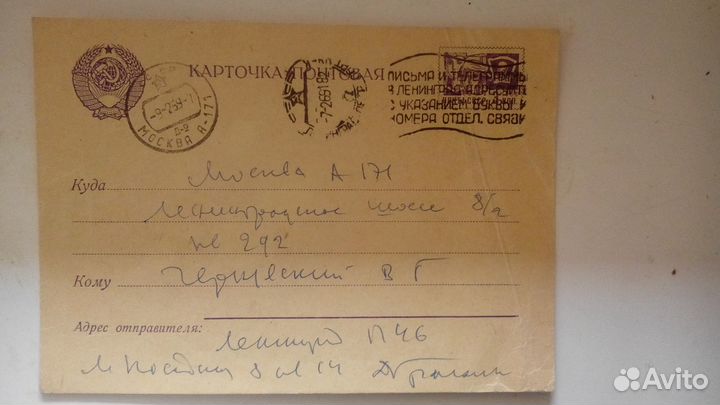 КАРТОЧКА ПОЧТОВАЯ
МОСКВА А-171
-9-2 59-
ПИСЬМА И ТЕЛЕГРАММЫ
В ЛЕНИНГРАД АДРЕСУЙТЕ
С УКАЗАНИЕМ БУКВЫ И
НОМЕРА ОТДЕЛ. СВЯЗИ
Куда Москва А 171
Ленинградское шоссе 8/2
кв 292
Кому В Г
Адрес отправителя: Ленинград П 46
М Посадская 8 кв 14
Avito